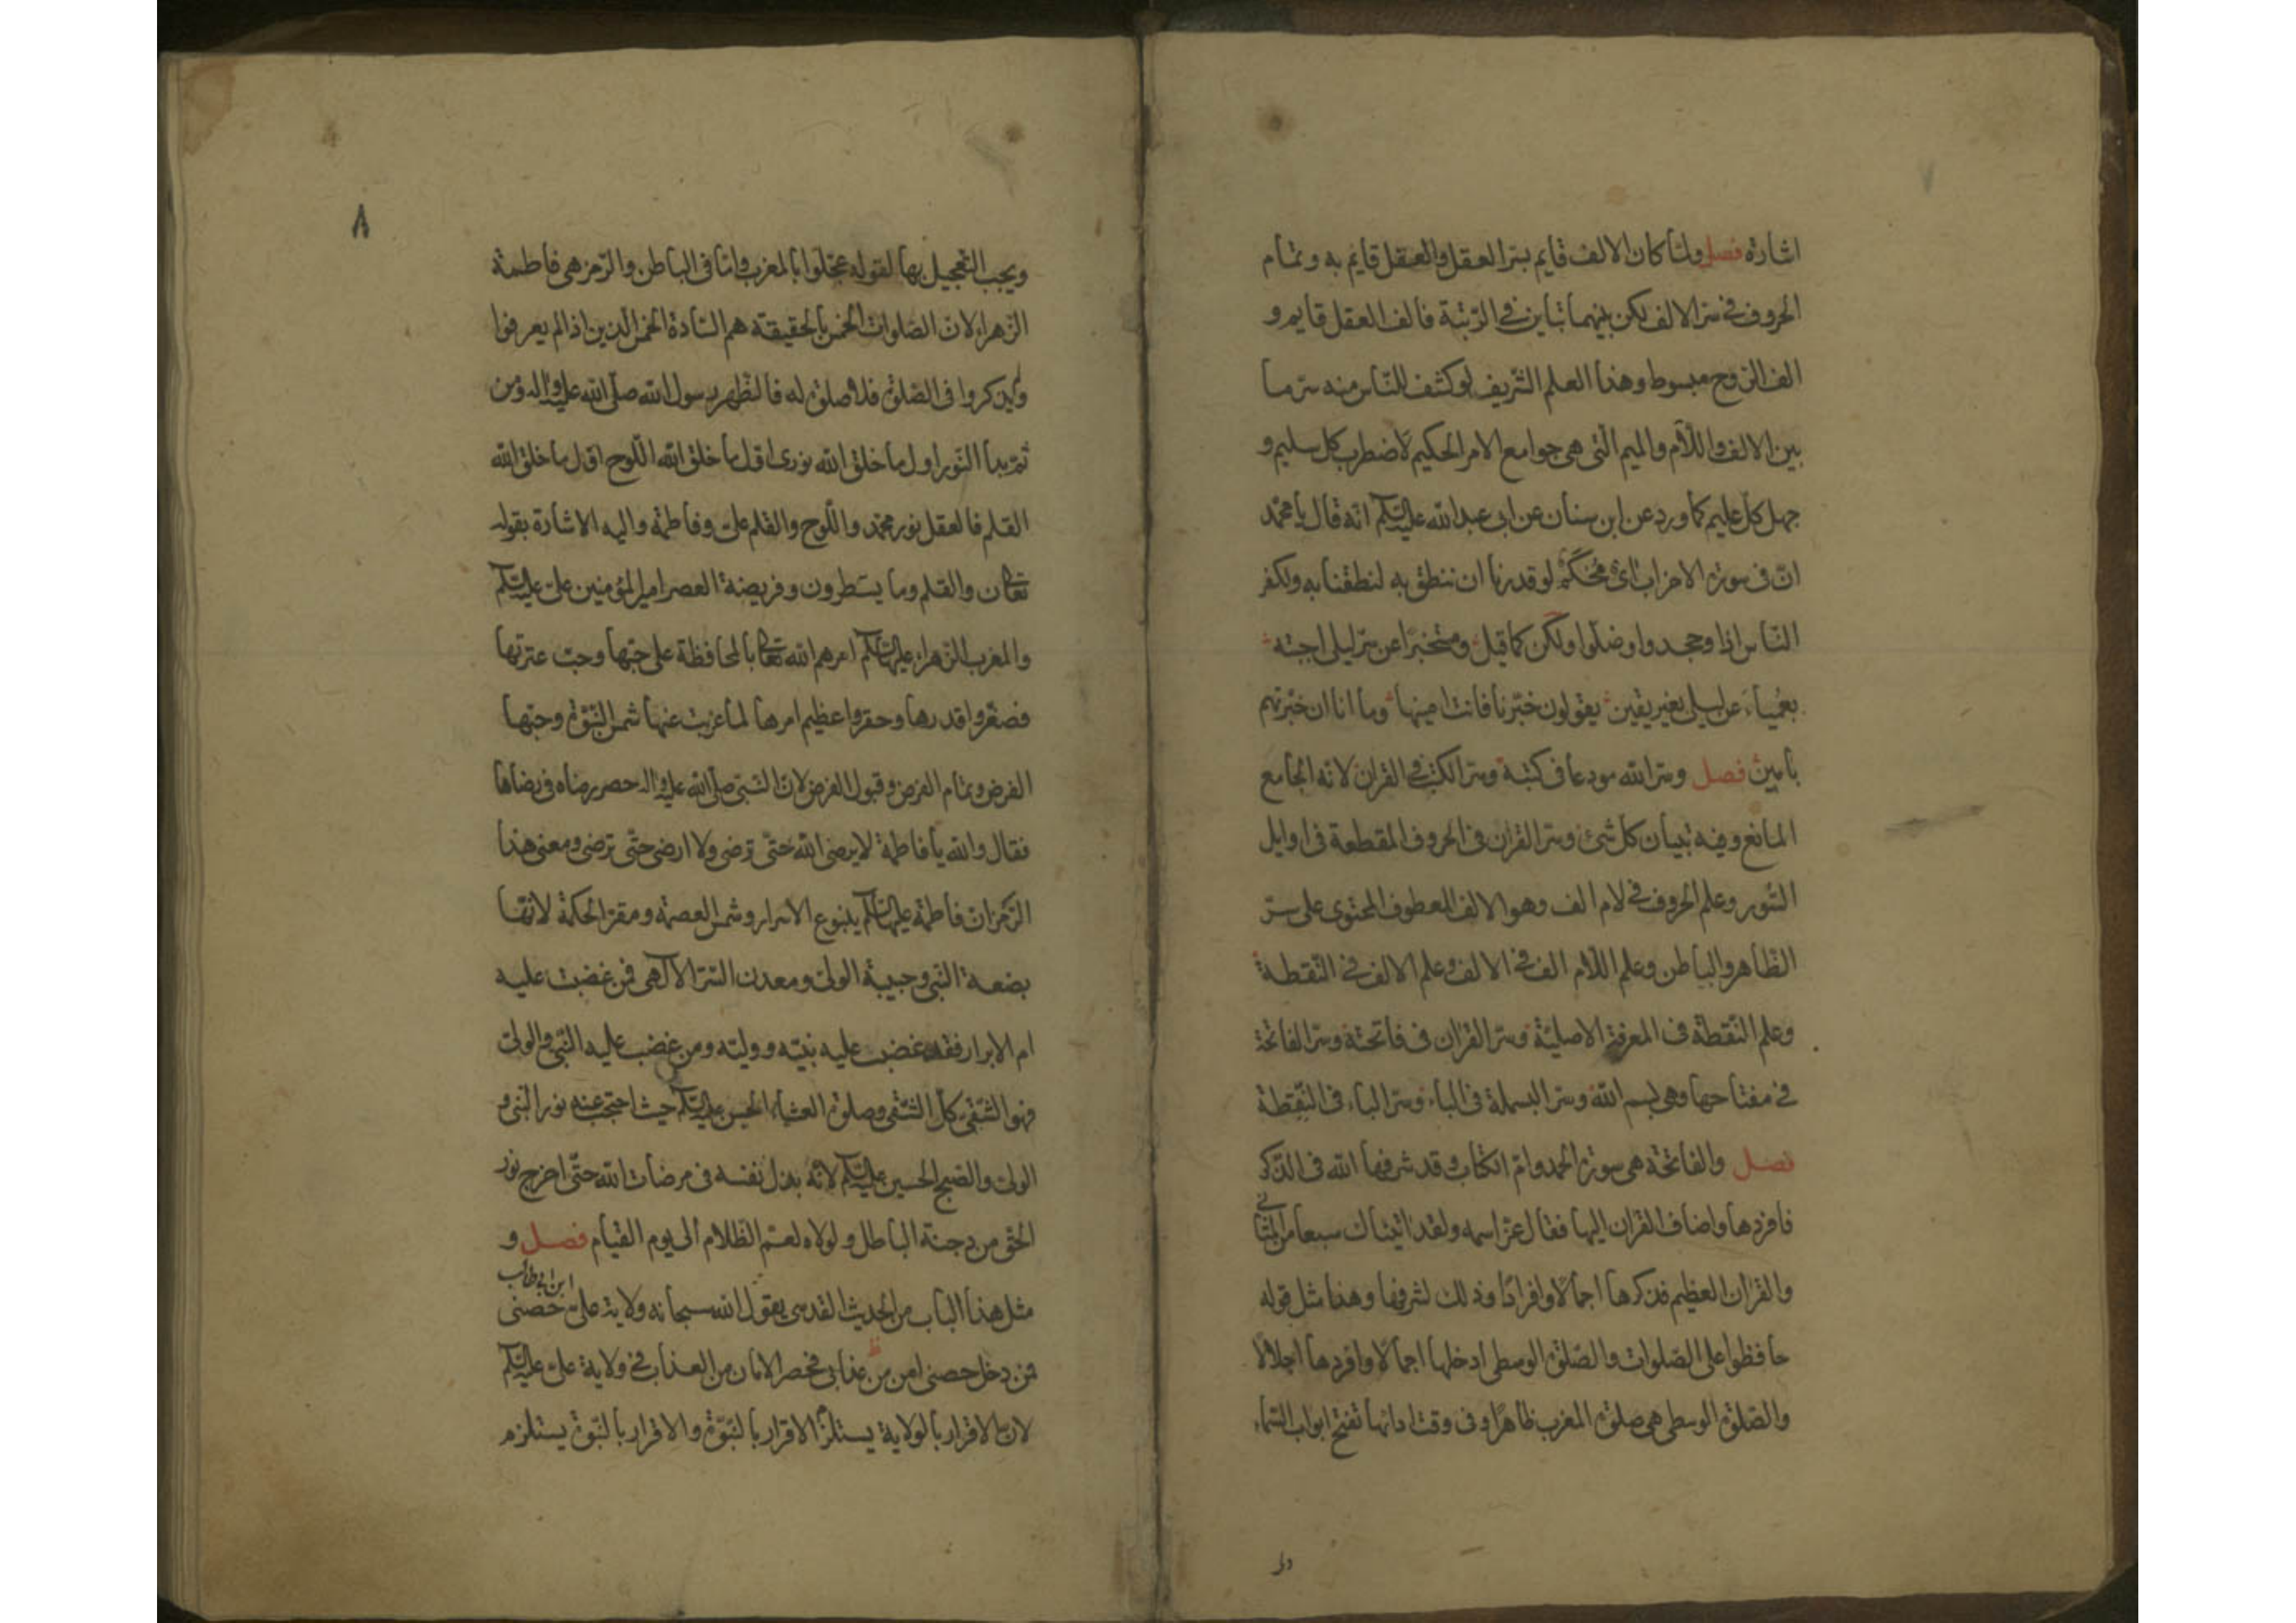 اشارة فصل ولما كان الالف قايم بسر العقل والعقل قايم به وتمام
الحروف في سر الالف لكن بينهما تباين في الرتبة فالف العقل قايم و
الف الروح مبسوط وهذا العلم الشريف لو كشف للناس منه سر ما
بين الالف واللام والميم التي هي جوامع الامر الحكيم لاضطرب كل سليم و
جهل كل عليم كما ورد عن ابن سنان عن ابي عبد الله عليه السلام انه قال يا محمد
ان في سورة الاحزاب آي محكمة لو قدرنا ان ننطق به لنطقنا به ولكفر
الناس اذا وجحدوا وضلوا ولكن كما قيل ومستخبرا عن سر ليلى اجبته
بعمياء عن ليلى بغير يقين يقولون خبرنا فانت امينها وما انا ان خبرتهم
بامين فصل وسر الله مودعا في كتبه وسر الكتب في القران لانه الجامع
المانع وفيه تبيان كل شئ وسر القران في الحروف المقطعة في اوايل
السور وعلم الحروف في لام الف وهو الالف المعطوف المحتوى على سر
الظاهر والباطن وعلم اللام الف في الالف وعلم الالف في النقطة
وعلم النقطة في المعرفة الاصلية وسر القران في فاتحته وسر الفاتحة
في مفتاحها وهي بسم الله وسر البسملة في الباء وسر الباء في النقطة
فصل والفاتحة هي سورة الحمد وام الكتاب وقد شرفها الله في الذكر
فافردها واضاف القران اليها فقال عز اسمه ولقد اتيناك سبعا من المثاني
والقران العظيم فذكرها اجمالا وافرادا وذلك لشرفها وهذا مثل قوله
حافظوا على الصلوات والصلوة الوسطى ادخلها اجمالا وافردها اجلالا
والصلوة الوسطى هي صلوة المغرب ظاهرا وفي وقت ادائها تفتح ابواب السماء
٨
ويجب التعجيل بها لقوله عجلوا بالمغرب واما في الباطن والرمز هي فاطمة
الزهراء لان الصلوات الخمس بالحقيقة هم السادة الخمس الذين اذا لم يعرفوا
ولم يذكروا في الصلوة فلا صلوة له فالظهر رسول الله صلى الله عليه واله ومن
ثم بدأ النور اول ما خلق الله نورى اول ما خلق الله اللوح اول ما خلق الله
القلم فالعقل نور محمد واللوح والقلم على وفاطمة واليه الاشارة بقوله
تعالى ن والقلم وما يسطرون وفريضة العصر امير المؤمنين على عليه السلام
والمغرب الزهراء عليها السلام امرهم الله تعالى بالمحافظة على حبها وحب عترتها
فصغروا قدرها وحقروا عظيم امرها لما غربت عنها شمس النبوة وحبها
الفرض وتمام الفرض وقبول الفرض لان النبى صلى الله عليه واله حصر رضاه في رضاها
فقال والله يا فاطمة لا يرضى الله حتى ترضى ولا ارضى حتى ترضى ومعنى هذا
الرمز ان فاطمة عليها السلام ينبوع الاسرار وشمس العصمة ومقر الحكمة لانها
بضعة النبى وحبيبة الولى ومعدن السر الالهى فمن غضبت عليه
ام الابرار فقد غضب عليه نبيه ووليه ومن غضب عليه النبى والولى
فهو الشقى كل الشقى وصلوة العشاء الحسن عليه السلام حيث احتجب عنه نور النبى و
الولى والصبح الحسين عليه السلام لانه بذل نفسه في مرضات الله حتى اخرج نور
الحق من دجنة الباطل ولولاه لعم الظلام الى يوم القيام فصل و
مثل هذا الباب من الحديث القدسى يقول الله سبحانه ولاية على ابن ابي طالب حصنى
فمن دخل حصنى امن من عذابى فحصر الامان من العذاب في ولاية على عليه السلام
لان الاقرار بالولاية يستلزم الاقرار بالنبوة والاقرار بالنبوة يستلزم